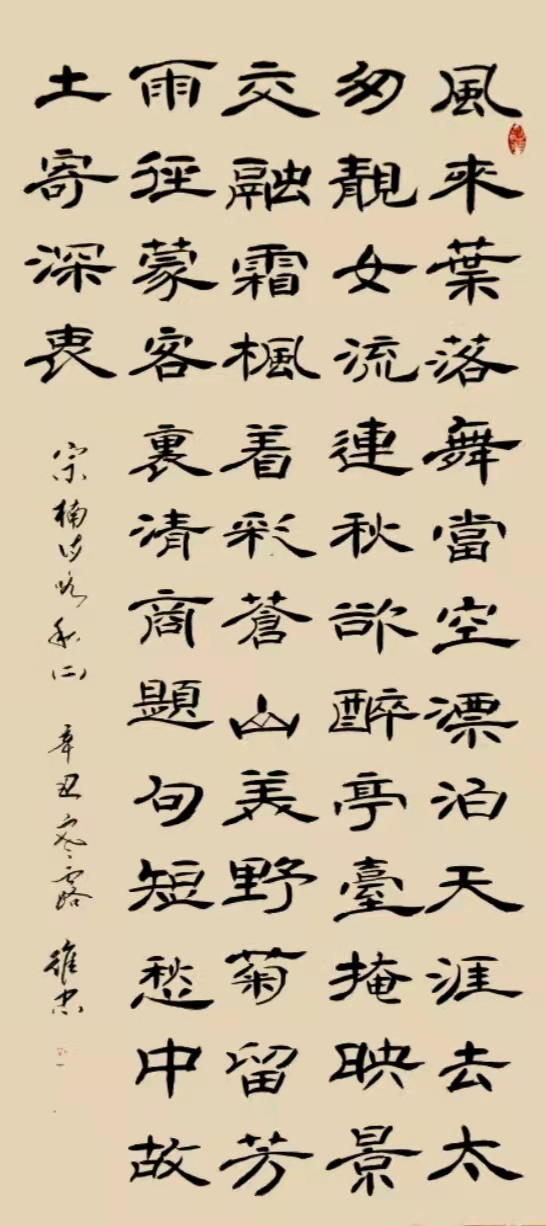 風來葉落舞當空漂泊天涯去太
匆靚女流連秋欲醉亭臺掩映景
交融霜楓着彩蒼山美野菊留芳
雨徑蒙客裏清商題句短愁中故
土寄深衷
宗楠詩 秋(二) 辛丑寒露 維忠